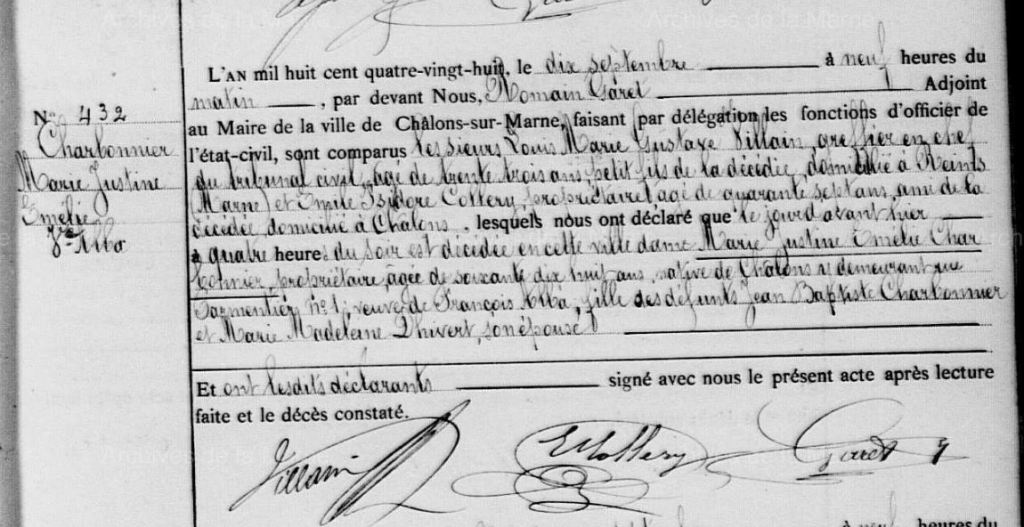 Archives de la Marne
Archives de la Marne
N° 432
Charbonnier
Marie Justine
Emélie
Vve Abba
L'AN mil huit cent quatre-vingt-huit, le dix septembre à neuf heures du
matin, par devant Nous, Romain Garet Adjoint
au Maire de la ville de Châlons-sur-Marne, faisant par délégation les fonctions d'officier de
l'état-civil, sont comparus les sieurs Louis Marie Gustave Villain, greffier en chef
du tribunal civil, agé de trente trois ans, petit fils de la décédée, domicilié à Reims
(Marne) et Emile Isidore Collery, propriétaire, agé de quarante sept ans, ami de la
décédée domicilié à Châlons, lesquels nous ont déclaré que le jour d'avant hier
à quatre heures du soir est décédée en cette ville dame Marie Justine Emélie Char
bonnier, propriétaire, agée de soixante dix huit ans, native de Châlons y demeurant rue
Parmentier, n° 1, veuve de François Abba, fille des défunts Jean Baptiste Charbonnier
et Marie Madeleine Dhivert, son épouse
Et ont lesdits déclarants signé avec nous le présent acte après lecture
faite et le décès constaté.
Villain ECollery Garet
à neuf heures du